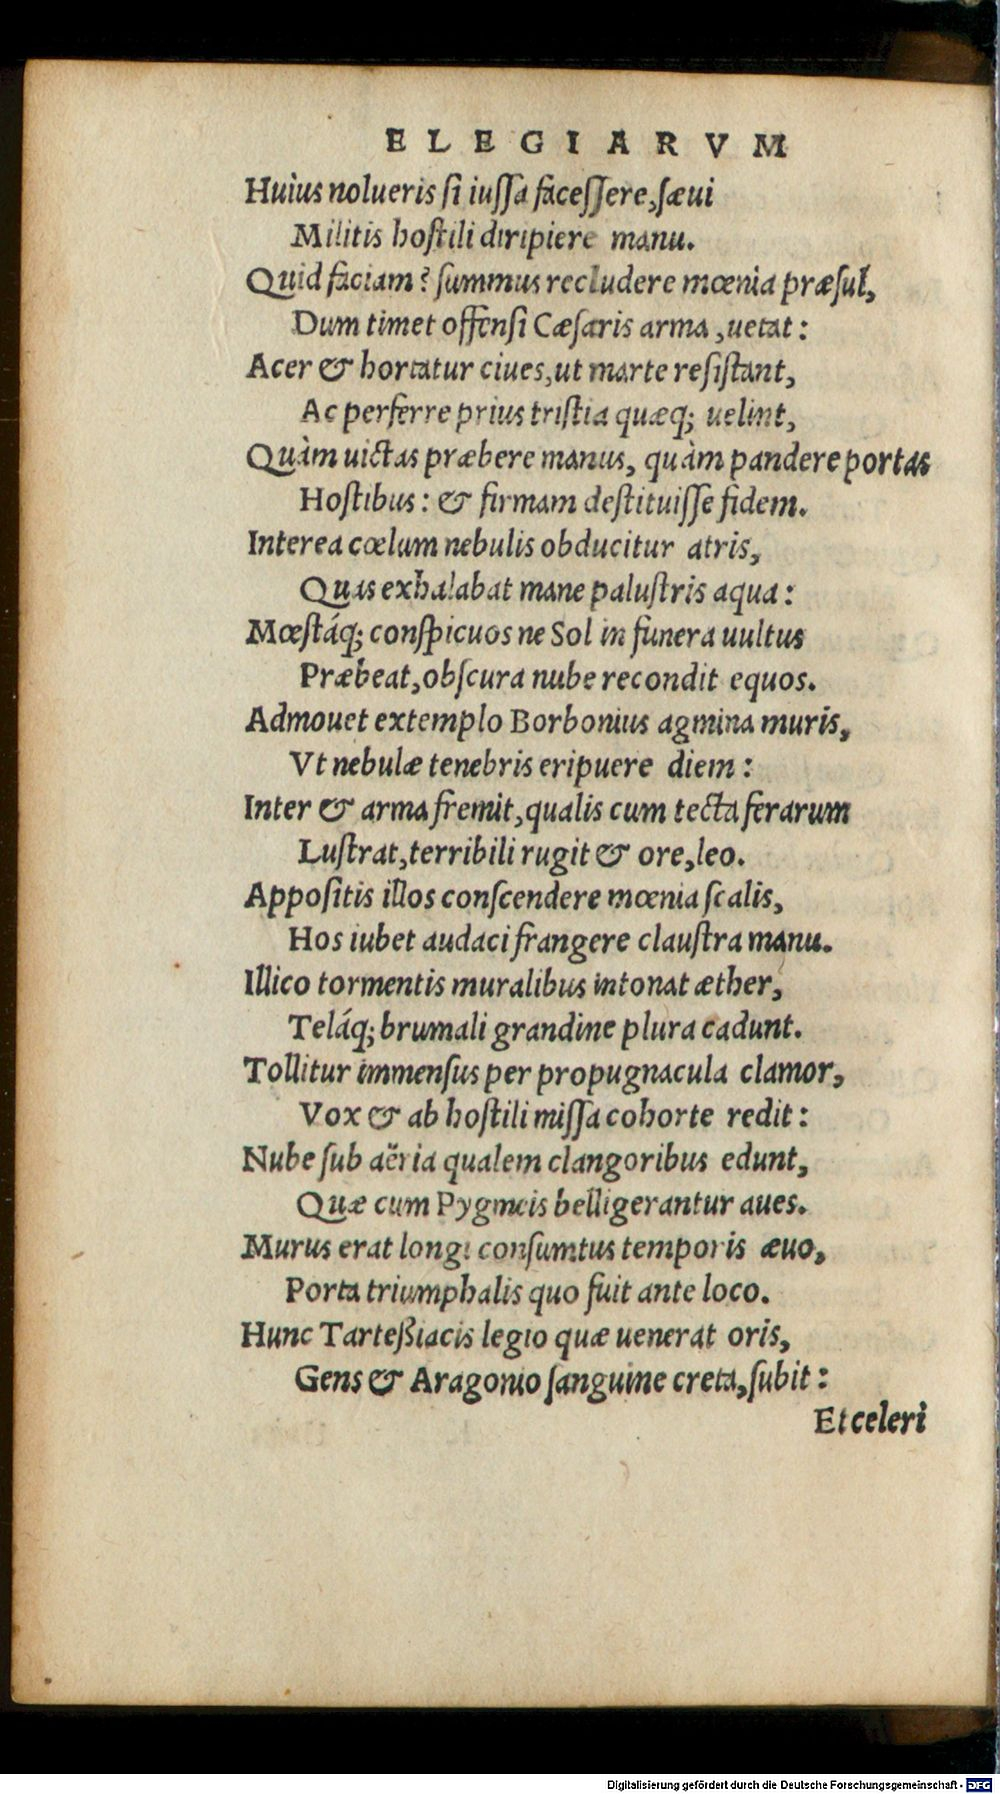 ELEGIARVM
Huius nolueris ſi iuſſa faceſſere, ſæui
Militis hoſtili diripiere manu.
Quid faciam? ſummus recludere mœnia præſul,
Dum timet offenſi Cæſaris arma, uetat:
Acer & hortatur ciues, ut marte reſiſtant,
Ac perferre prius triſtia quæq; uelint,
Quàm uictas præbere manus, quàm pandere portas
Hoſtibus: & firmam deſtituiſſe fidem.
Interea cœlum nebulis obducitur atris,
Quas exhalabat mane paluſtris aqua:
Mœſtáq; conſpicuos ne Sol in funera uultus
Præbeat, obſcura nube recondit equos.
Admouet extemplo Borbonius agmina muris,
Vt nebulæ tenebris eripuere diem:
Inter & arma fremit, qualis cum tecta ferarum
Luſtrat, terribili rugit & ore, leo.
Appoſitis illos conſcendere mœnia ſcalis,
Hos iubet audaci frangere clauſtra manu.
Illico tormentis muralibus intonat æther,
Teláq; brumali grandine plura cadunt.
Tollitur immenſus per propugnacula clamor,
Vox & ab hoſtili miſſa cohorte redit:
Nube ſub aëria qualem clangoribus edunt,
Quæ cum Pygmeis belligerantur aues.
Murus erat longi conſumtus temporis æuo,
Porta triumphalis quo fuit ante loco.
Hunc Tarteßiacis legio quæ uenerat oris,
Gens & Aragonio ſanguine creta, ſubit:
Et celeri
Digitalisierung gefördert durch die Deutsche Forschungsgemeinschaft - DFG